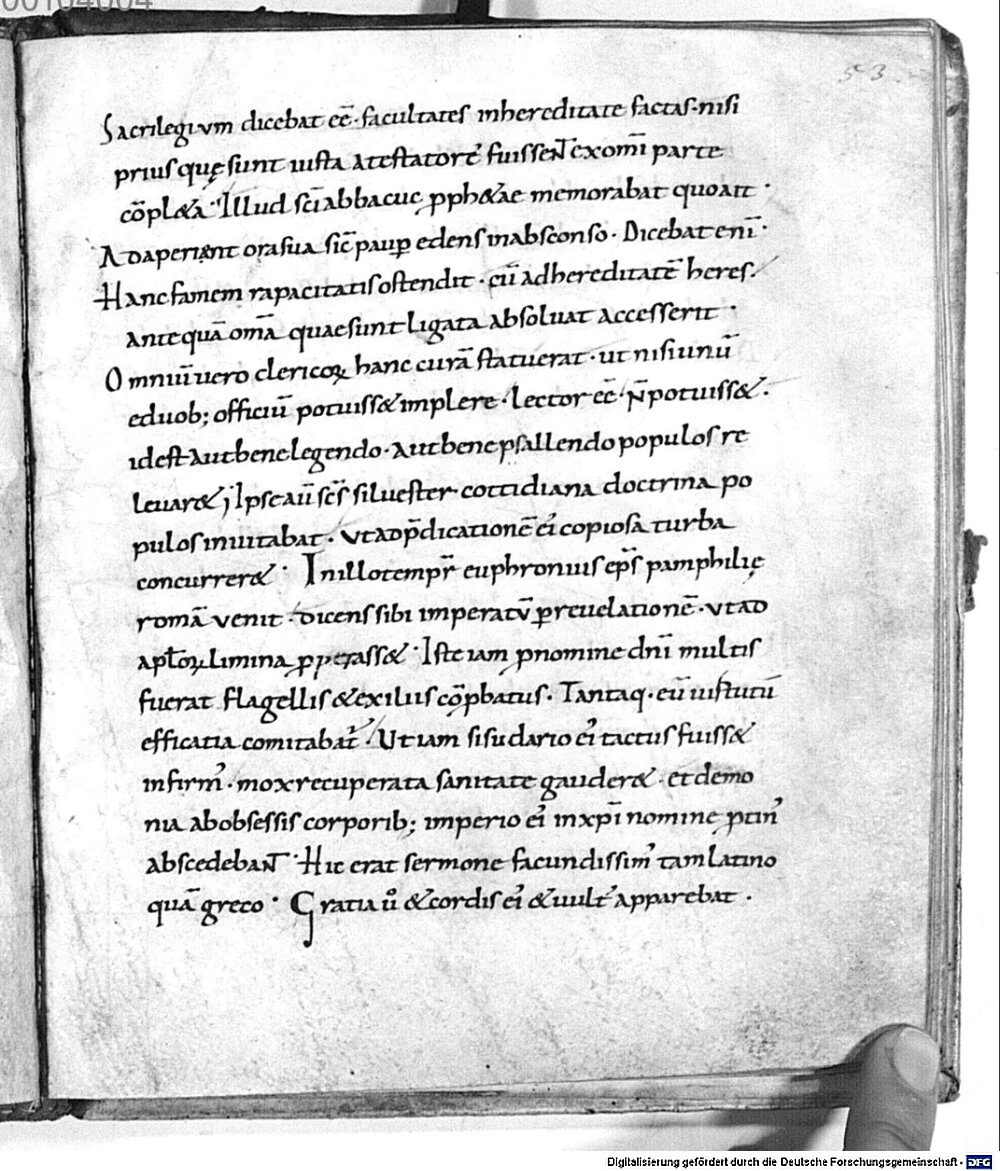 00104004
53
Sacrilegium dicebat eē· facultates inhereditate factas· nisi
prius quę sunt iusta atestatorē fuissent exomī parte
cōpl&a· Illud scī abbacuc pph&ae memorabat quoait·
Adaperiant ora sua sic̄ paup edens inabsconso· Dicebat enī·
Hanc famem rapacitatis ostendit· cū adhereditatē heres·
antequā omā quae sunt ligata absoluat accesserit·
Omniū uero clericoꝝ hanc curā statuerat· ut nisi unū
eduob; officiū potuiss& implere· lector eē· n̄ potuiss&·
idest aut bene legendo· aut bene psallendo populos re
leuar&; Ipse aū scs̄ siluester cottidiana doctrina po
pulos inuitabat· ut ad p̄dicationē eī copiosa turba
concurrer&· In illo tempr̄ euphronius ep̄s pamphilię
romā venit· dicens sibi imperatū ꝑ reuelationē· ut ad
aptoꝝ limina ꝓperass&· Iste iam ꝓ nomine dnī multis
fuerat flagellis & exiliis cōpbatus· Tantaq· eū uistutū
efficatia comitabat᷑· Ut iam si sudario eꝰ tactus fuiss&
infirmꝰ· mox recuperata sanitate gauder&· et demo
nia ab obsessis corporib; imperio eꝰ in xpī nomine ptinꝰ
abscedebant· Hic erat sermone facundissimꝰ tam latino
quā greco· Gratia u̾ & cordis eꝰ & uultꝰ apparebat·
Digitalisierung gefördert durch die Deutsche Forschungsgemeinschaft - DFG